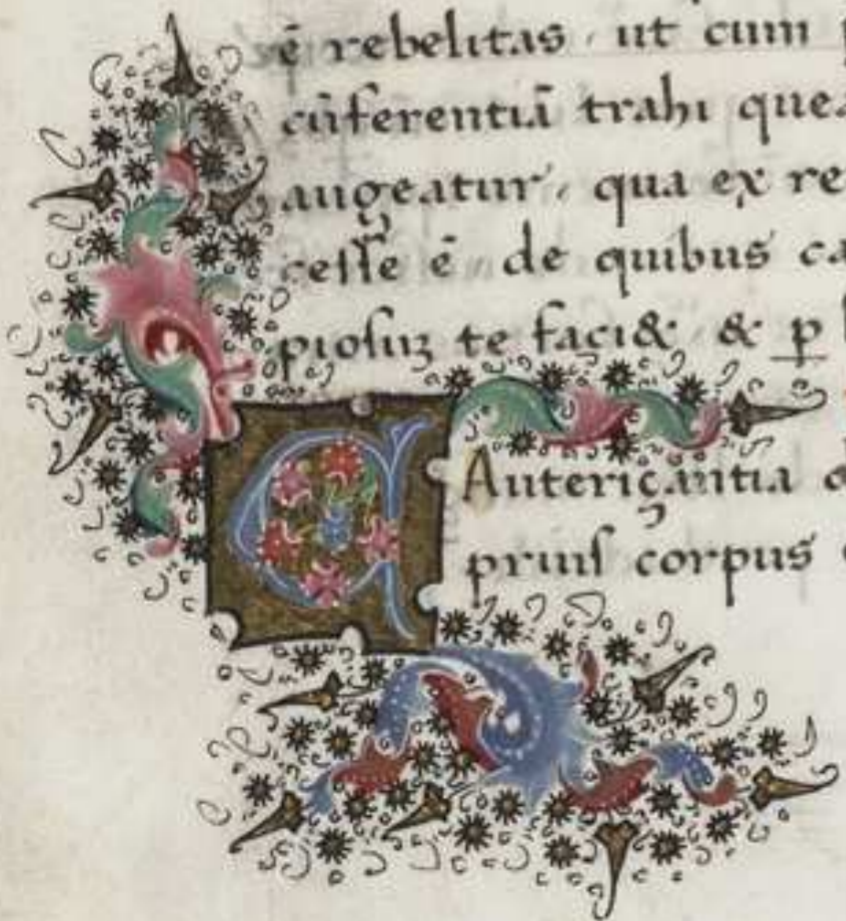 ē rebelitas, ut cum p
cūferentiā trahi quea
augeatur, qua ex re
cesse ē de quibus ca
piosuꝫ te faci& & ꝑ
Auteriçantia
priuſ corpus